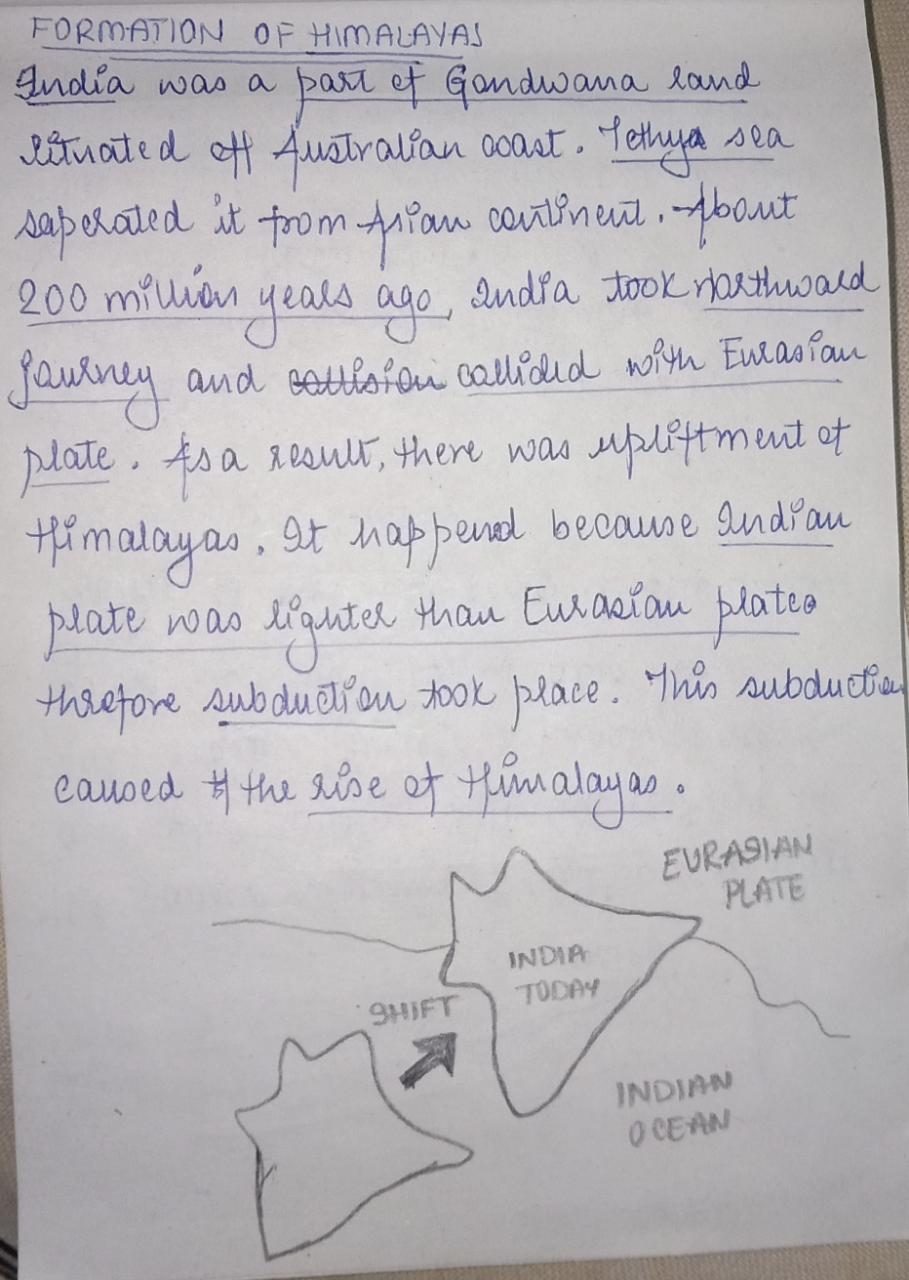 FORMATION OF HIMALAYAS
India was a part of Gondwana land
situated off Australian coast. Tethys sea
saperated it from Asian continent. About
200 million years ago, India took northward
journey and collision collided with Eurasian
plate. As a result, there was upliftment of
Himalayas. It happend because Indian
plate was lighter than Eurasian plate
threfore subduction took place. This subduction
caused the rise of Himalayas.
EURASIAN
PLATE
INDIA
TODAY
SHIFT
INDIAN
OCEAN